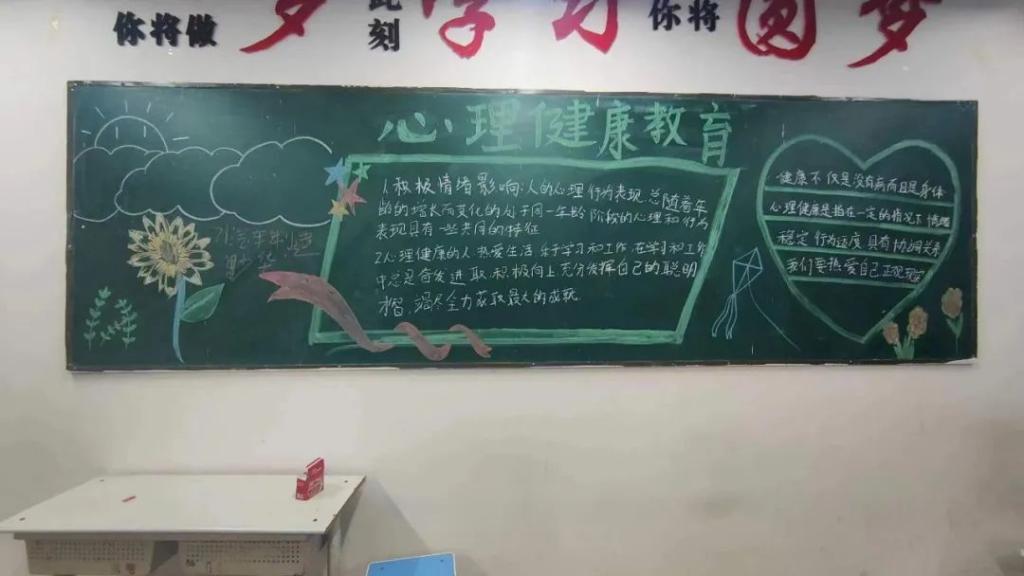 你将做
梦
此刻
学习
你将
圆梦
心理健康教育
1.积极情绪影响:人的心理行为表现总随着年
龄的增长而变化的处于同一年龄阶段的心理和行为
表现具有一些共同的特征
2心理健康的人热爱生活乐于学习和工作在学习和工作
中总是奋发进取积极向上充分发挥自己的聪明
竭尽全力获取最大的成就
健康不仅是没有病而且是身体
心理健康是指在一定的情况下情绪
稳定行为适度具有协调关系
我们要热爱自己正视现实